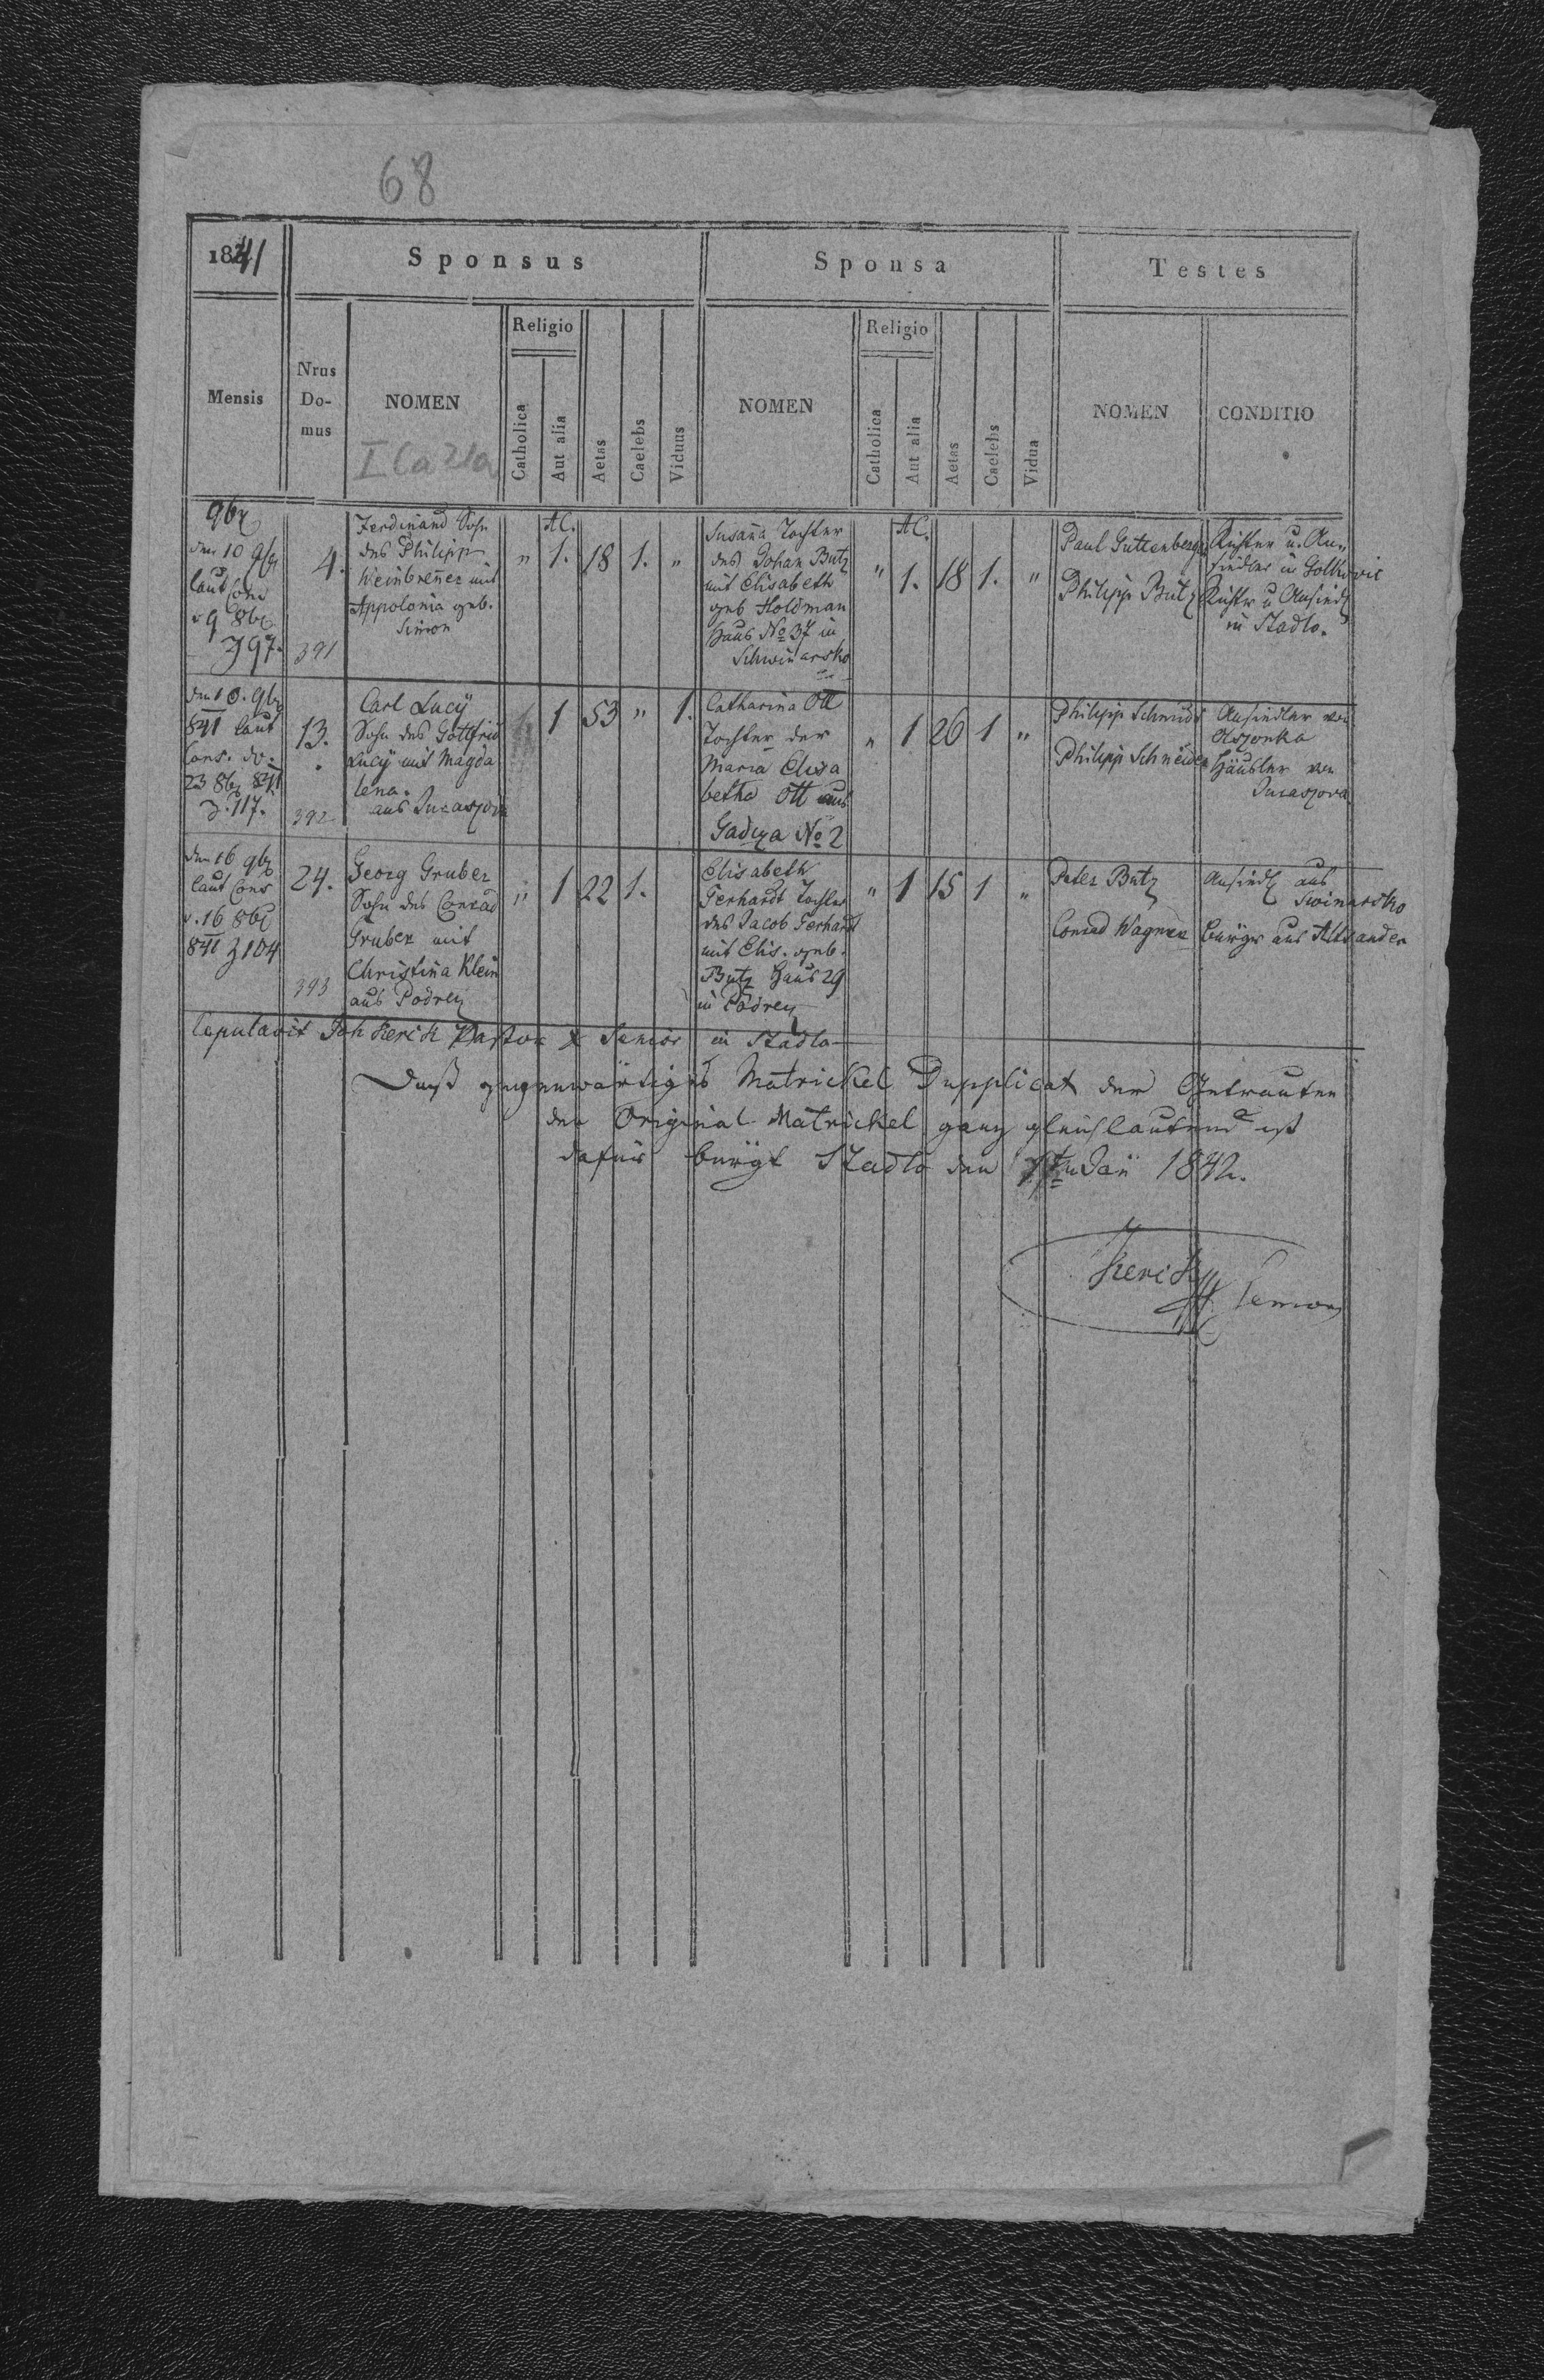 68
1841 Sponsus Sponsa Testes
Mensis Nrus Do- mus NOMEN Religio Catholica Aut alia Aetas Caelebs Viduus NOMEN Religio Catholica Aut alia Aetas Caelebs Vidua NOMEN CONDITIO
9br
den 10 9br
laut Cons
v 9 8br
Z 97.
4.
391
Ferdinand Sohn
des Philipp
Weinbrener mit
Appolonia geb.
Simon
" AC. 1. 18 1. "
Susana Tochter
des Johan Butz
mit Elisabeth
geb Holdman
Haus No 37 in
Schwinarsko
" AC. 1. 18 1. "
Paul Guttenberger
Philipp Butz
Richter u. An-
siedler in Golkovic
Richter u Ansiedl
in Stadlo.
den 10. 9br
841 laut
Cons. do.
23 8br 841
Z. 117.
13.
392
Carl Lucÿ
Sohn des Gottfried
Lucÿ mit Magda
lena.
aus
1 53 " 1.
Catharina Ott
Tochter der
Maria Elisa
betha Ott aus
Gadyza No 2
" 1 26 1 "
Philipp Schmidt
Philipp Schneider
Ansiedler von
Olszonka
Häusler von
den 16 9br
laut Cons
v. 16 8br
841 Z 104
24.
393
Georg Gruber
Sohn des Conrad
Gruber mit
Christina Klein
aus Podrey
" 1 22 1.
Elisabeth
Gerhardt Tochter
des Jacob Gerhardt
mit Elis. geb.
Butz Haus 29
in Podrey
" 1 15 1 "
Peter Butz
Conrad Wagner
Ansiedl aus
Swinarsko
aus Altsandec
Copulavit Joh Pastor Senior in Stadlo
Daß gegenwärtiges Matrickel Dupplicat der Getrauten
der Original Matrickel ganz gleichlautend ist
dafür bürgt Stadlo den Jan 1842.
Senior